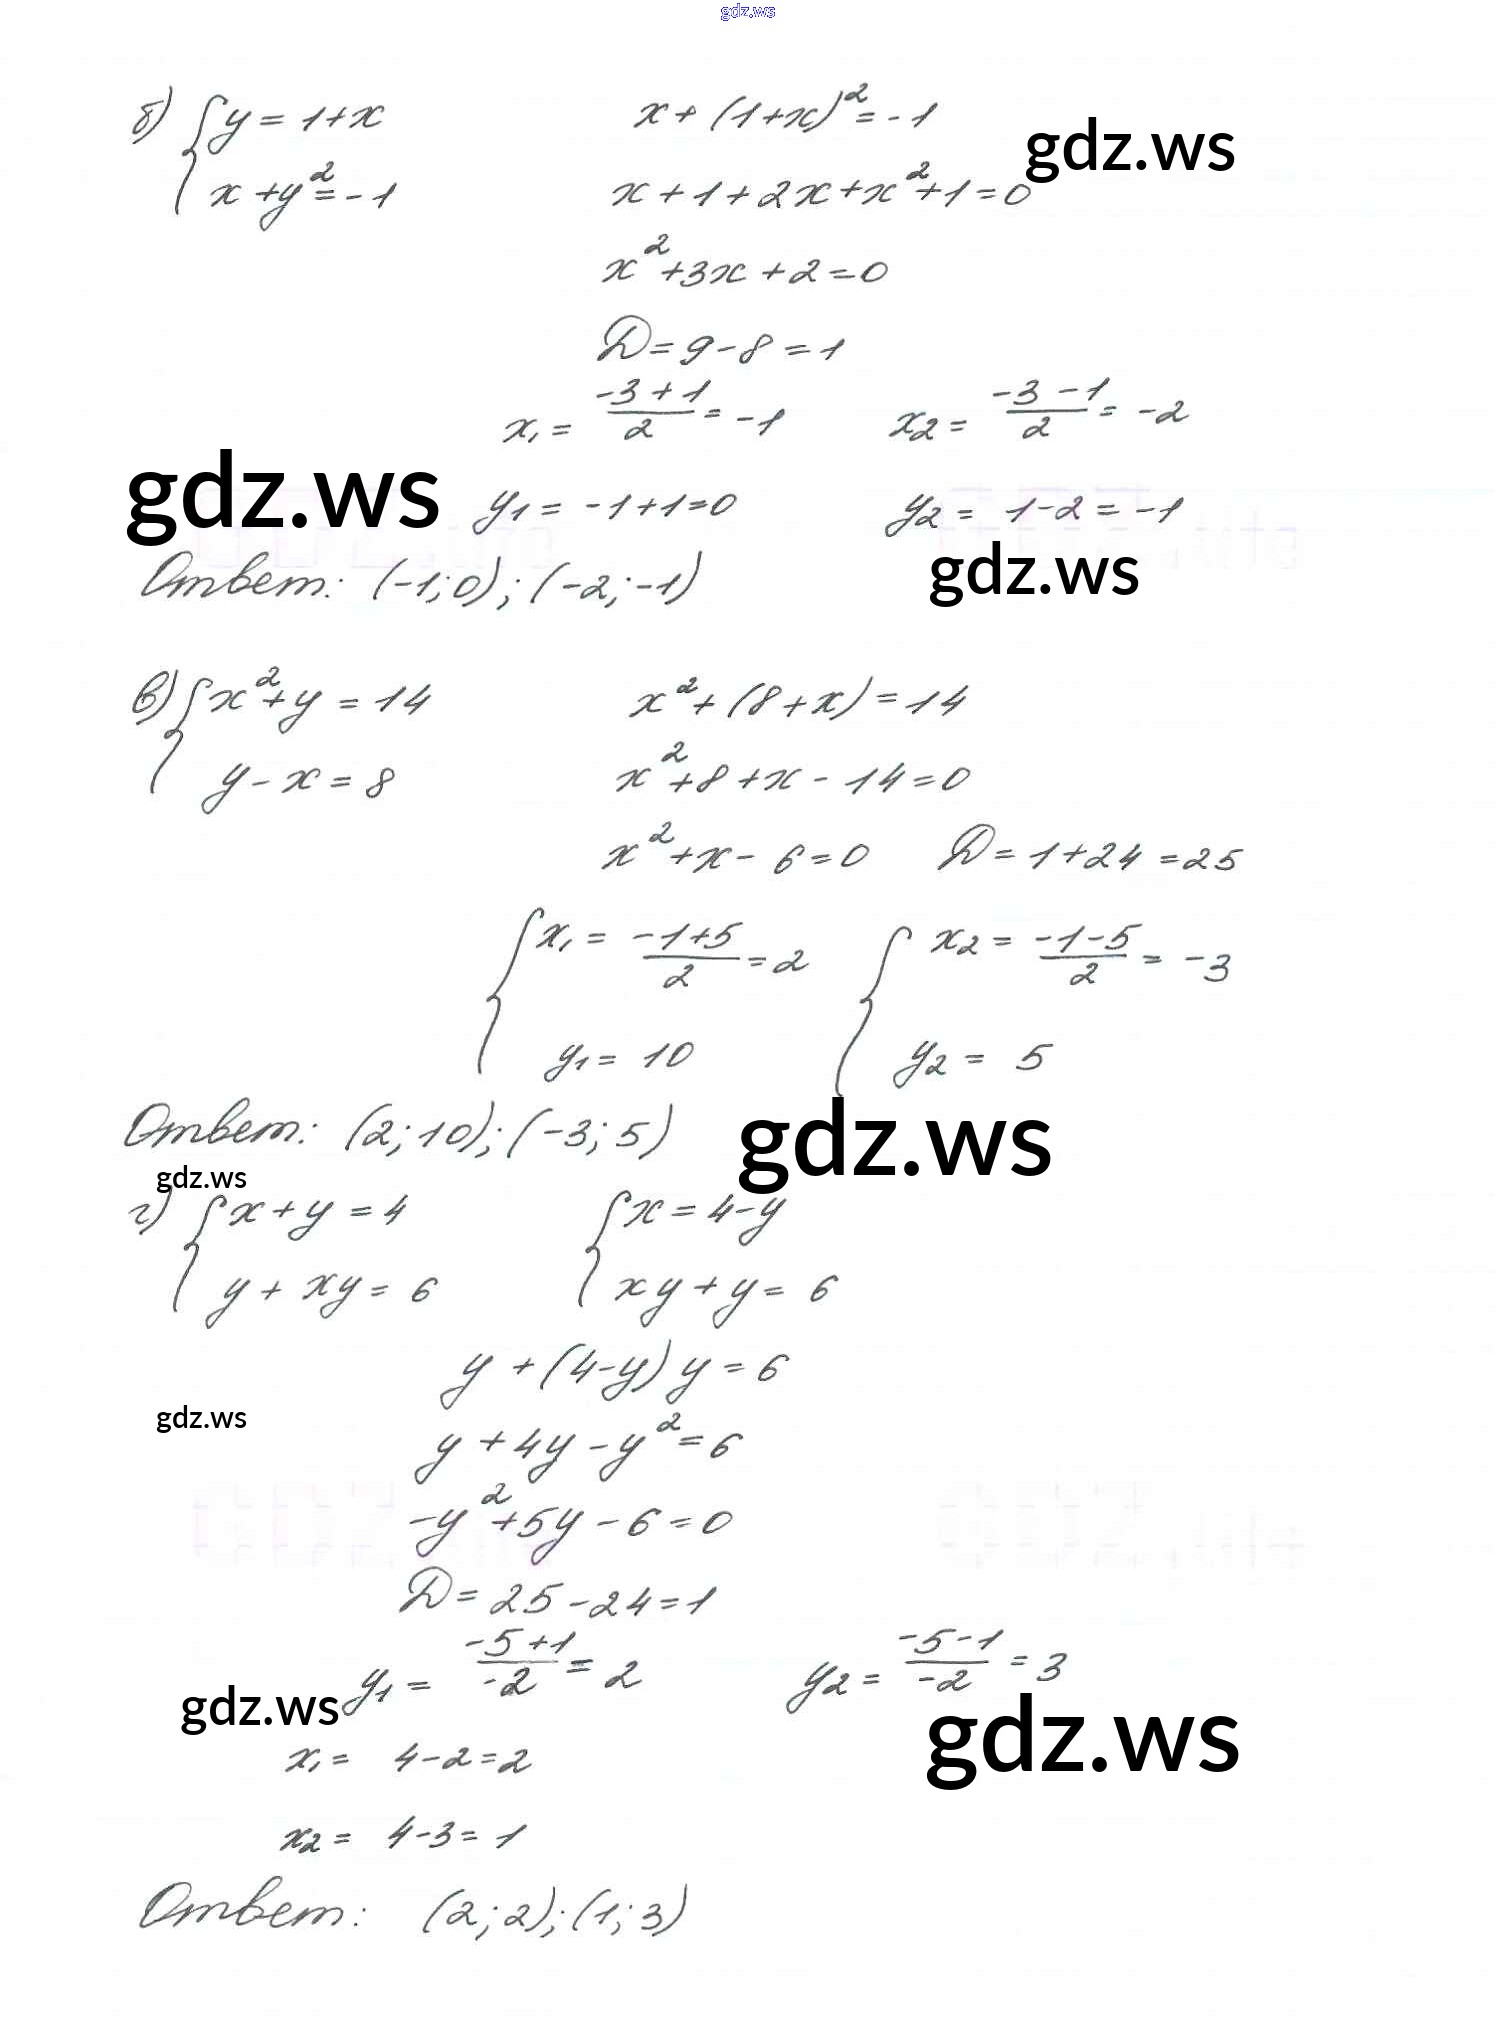 gdz.ws
б) { y = 1+x    x + (1+x)² = -1
gdz.ws
x + y² = -1    x + 1 + 2x + x² + 1 = 0
x² + 3x + 2 = 0
D = 9 - 8 = 1
x₁ = (-3 + 1)/2 = -1    x₂ = (-3 - 1)/2 = -2
gdz.ws
y₁ = -1 + 1 = 0    y₂ = 1 - 2 = -1
gdz.ws
Ответ: (-1; 0); (-2; -1)
в) { x² + y = 14    x² + (8 + x) = 14
y - x = 8    x² + 8 + x - 14 = 0
x² + x - 6 = 0    D = 1 + 24 = 25
{ x₁ = (-1+5)/2 = 2    { x₂ = (-1-5)/2 = -3
y₁ = 10    y₂ = 5
Ответ: (2; 10); (-3; 5)
gdz.ws
gdz.ws
г) { x + y = 4    { x = 4 - y
y + xy = 6    xy + y = 6
y + (4-y) y = 6
gdz.ws
y + 4y - y² = 6
-y² + 5y - 6 = 0
D = 25 - 24 = 1
y₁ = (-5 + 1)/-2 = 2    y₂ = (-5 - 1)/-2 = 3
gdz.ws
gdz.ws
x₁ = 4 - 2 = 2
x₂ = 4 - 3 = 1
Ответ: (2; 2); (1; 3)